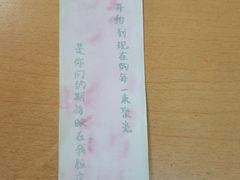 开始到现在的每一束聚光
是你们的期待映在我脸